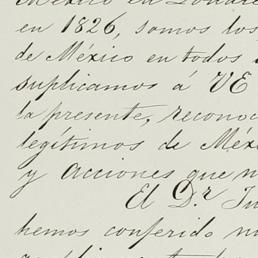 México en Londre
en 1826, somos los
de México en todos
suplicamos á VE
la presente, reconoc
legítimos de Méx
y acciones que n
El D.r Ju
hemos conferido n